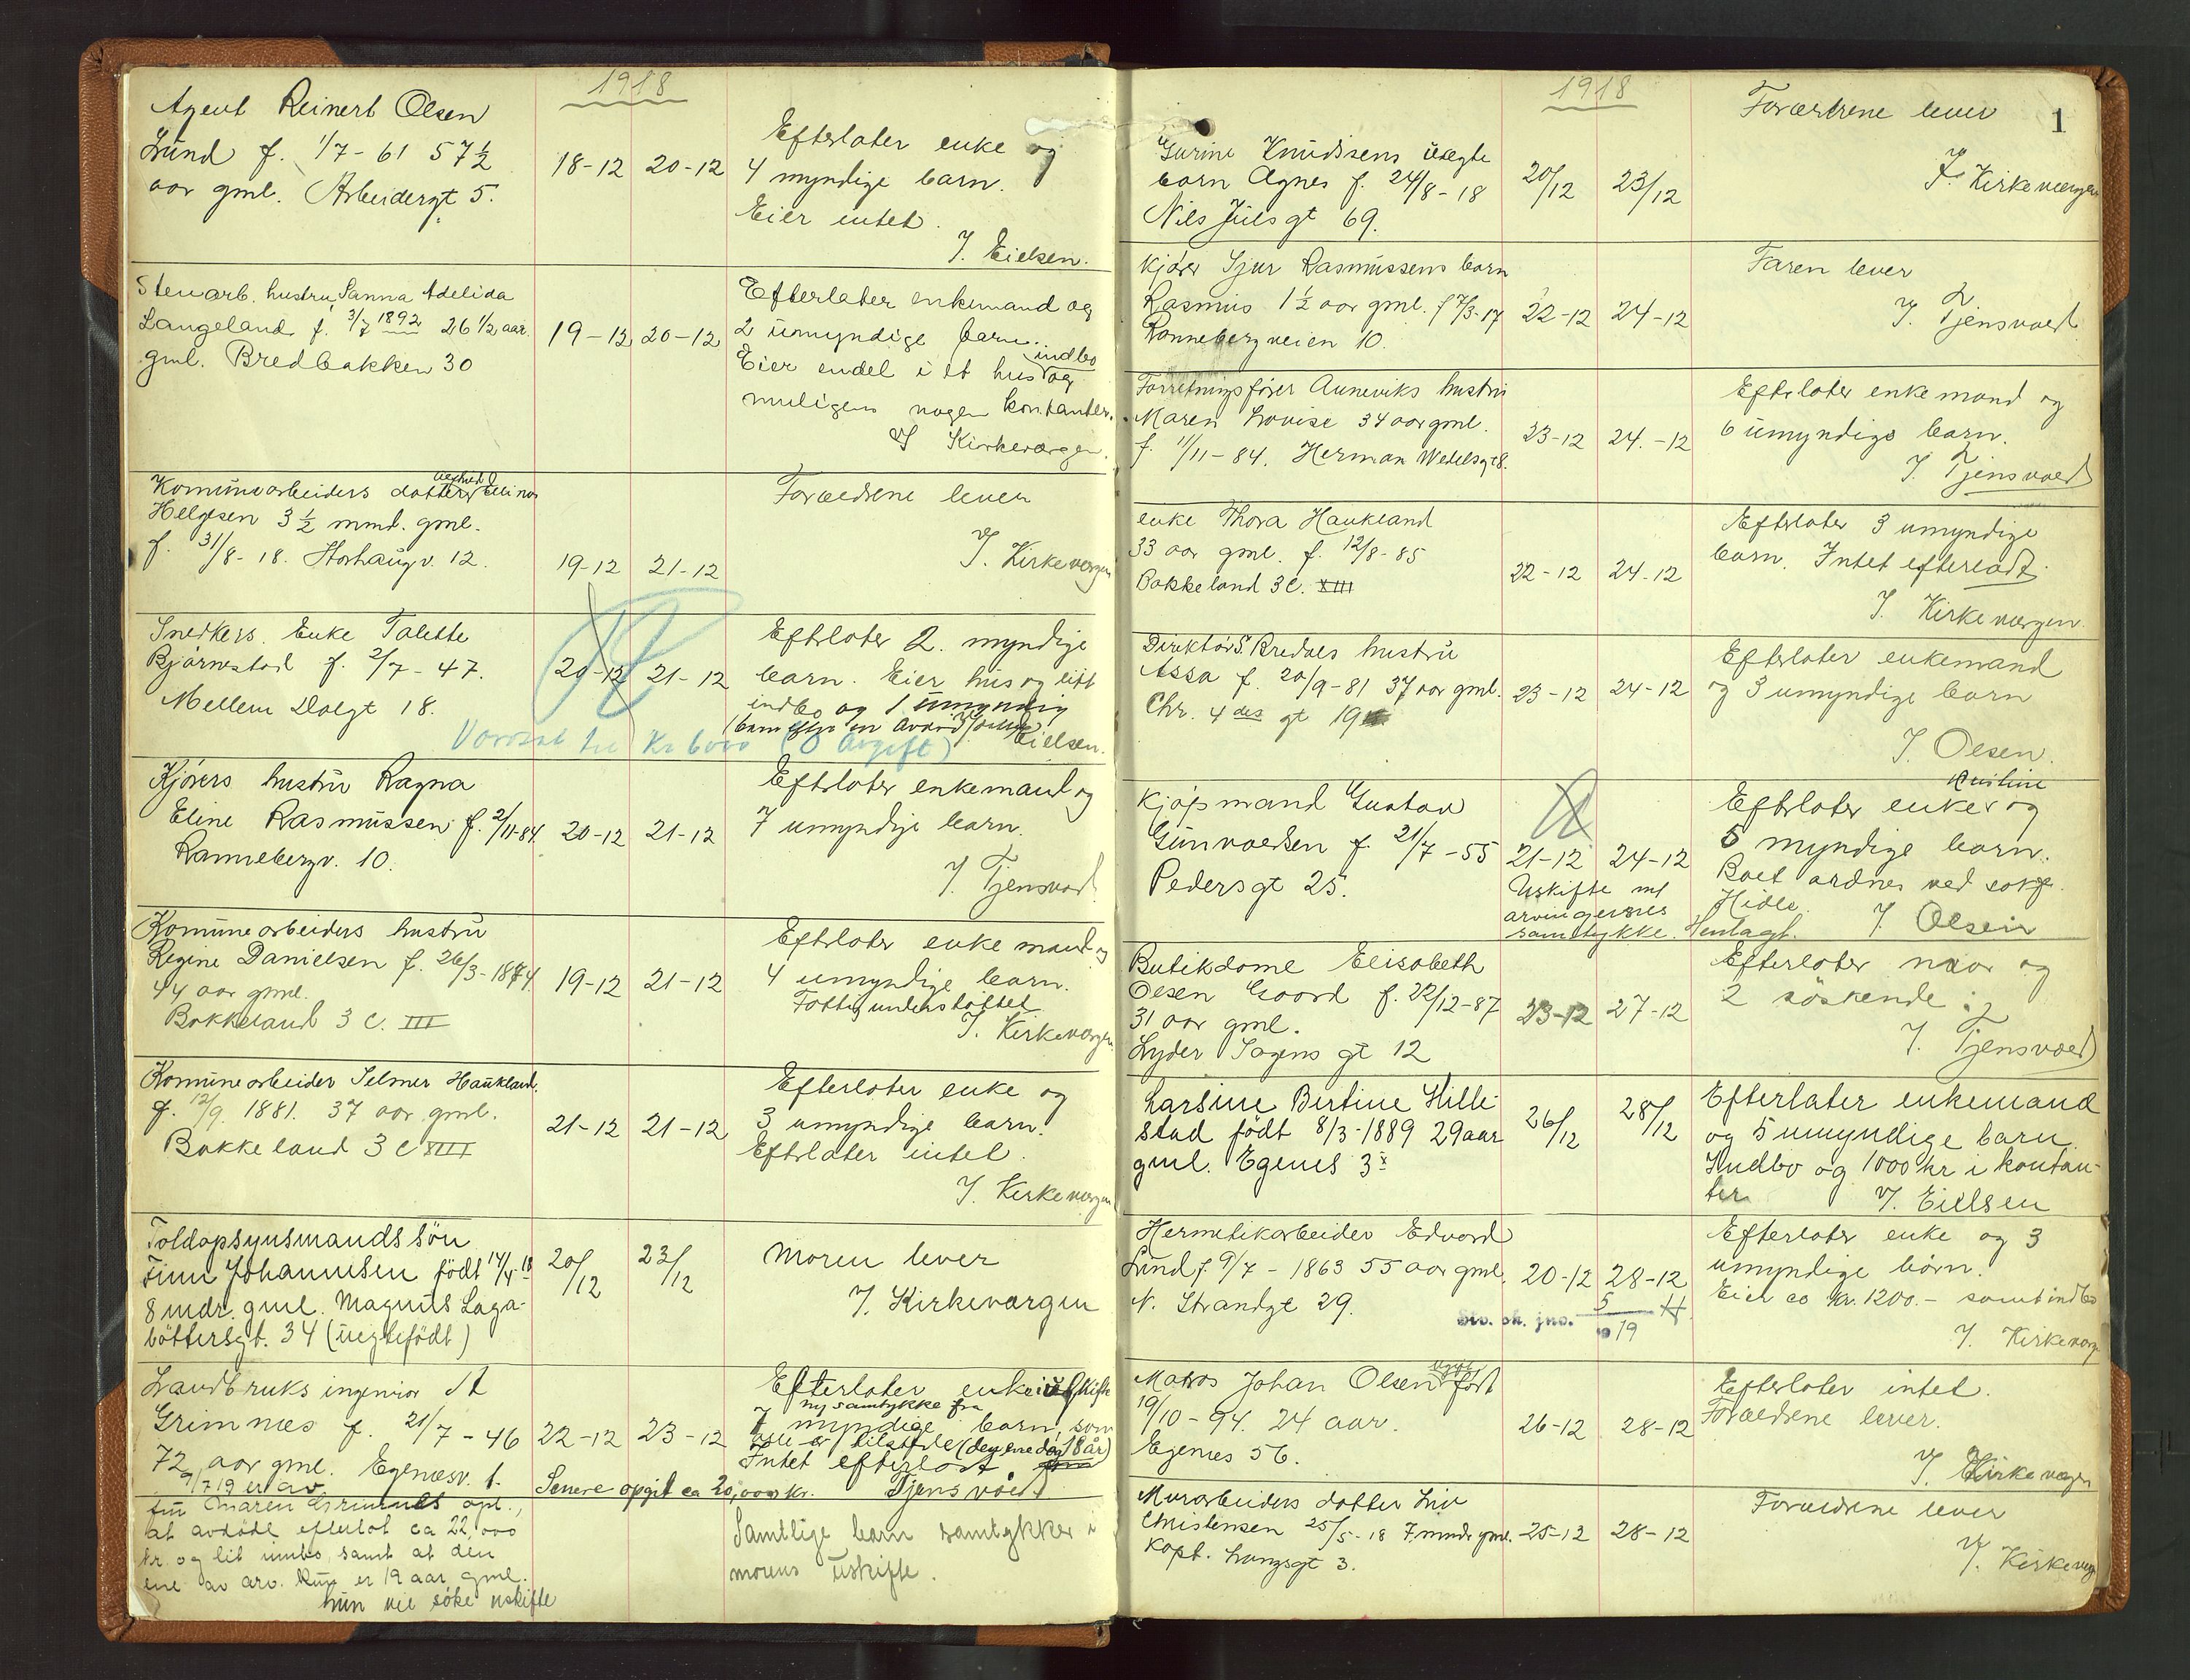 1918
Agent Reinert Olsen
Lund f. 1/7-61 57½
aar gml. Arbeidergt 5.
18-12 20-12
Efterlater enke og
4 myndige barn.
Eier intet.
J. Eielsen.
Stenarb. hustru, Sanna Adelida
Langeland f. 3/7 1892 26 1/2 aar.
gml. Bredbakken 30
19-12 20-12
Efterlater enkemand og
2 umyndige barn.
Eier endel i et hus og indbo
muligens nogen kontanter.
J Kirkevergen.
Komunearbeiders datter Ellinor
Helgesen 3½ mmd. gml.
f. 31/8-18. Storhaugv. 12.
19-12 21-12
Forældrene lever
J. Kirkevergen
Snedkers Enke Talette
Bjørnestad f. 2/7-47.
Mellem Dalgt 18.
20-12 21-12
Efterlater 2 myndige
barn. Eier hus og litt
indbo og 1 umyndig
barn efter en avdød
Eielsen.
Kr 6000 (0 avgift)
Kjørers hustru Ragna
Eline Rasmussen f. 2/11-84
Rannebergv. 10.
20-12 21-12
Efterlater enkemand og
7 umyndige barn.
J. Tjensvold
Komunearbeiders hustru
Regine Danielsen f. 26/3-1874
44 aar gml.
Bakkeland 3 c. III
19-12 21-12
Efterlater enkemand og
4 umyndige barn.
Fattigunderstøttet
J. Kirkevergen
Komunearbeider Selmer Haukland.
f. 12/9 1881. 37 aar gml.
Bakkeland 3 c XIII
21-12 21-12
Efterlater enke og
3 umyndige barn.
Efterlater intet.
J. Kirkevergen
Toldopsynsmands søn
Finn Johannesen født 14/4-18
8 mdr. gml. Magnus Laga-
bøttersgt. 34 (uegtefødt)
20/12 23/12
Moren lever
J. Kirkevergen
Landbruksingeniør
Grimnæs f. 21/7-46
72 aar gml. Egenesv. 1.
22-12 23-12
Efterlater enke i uskifte
ny samtykke fra
7 myndige barn, som
alle er tilstede (den ene dog 18 år)
Intet efterladt
Senere opgit ca 20,000 kr. Tjensvold
9/7 19 er av
fru Maren Grimnes opl.,
at avdøde efterlot ca 22,000
kr. og lit innbo, samt at den
ene av arv. kun er 19 aar gml.
hun vil søke uskifte
Samtlige barn samtykker i
morens uskifte.
1918
1
Gurine Knudsens uegte
barn Agnes f. 24/8-18
Nils Juels gt 69.
20/12 23/12
Forældrene lever
J. Kirkevergen
Kjører Sjur Rasmussens barn
Rasmus 1½ aar gml. f 7/3-17
Rannebergveien 10.
22-12 24-12
Faren lever
J. Tjensvold
Forretningsfører Auneviks hustru
Maren Lovise 34 aar gml.
f. 11/11-84. Herman Wedelsgt 8.
23-12 24-12
Efterlater enkemand og
6 umyndige barn.
J. Tjensvold
enke Thora Haukland
33 aar gml. f. 12/8-85
Bakkeland 3 C. XIII
22-12 24-12
Efterlater 3 umyndige
barn. Intet efterladt.
J. Kirkevergen.
Direktør S. Bredals hustru
Assa f. 20/9-81 37 aar gml.
Chr. 4des gt 19
23-12 24-12
Efterlater enkemand
og 3 umyndige barn
J. Olsen.
Kjøpmand Gustav
Gunvaldsen f. 21/7-55
Pedersgt 25.
21-12 24-12
Kristine
Efterlater enke og
5 myndige barn.
Boet ordnes ved sakf.
Hidle. J. Olsen
Uskifte m/
arvingernes
samtykke. Henlagt.
Butikdame Elisabeth
Olsen Gaard f. 22/12-87
31 aar gml.
Lyder Sagens gt 12
23-12 27-12
Efterlater mor og
2 søskende
J. Tjensvold
Larsine Bertine Hille-
stad født 8/3-1889 29 aar
gml. Egenes 3x
26/12 28/12
Efterlater enkemand
og 5 umyndige barn.
Indbo og 1000 kr i kontan-
ter. J. Eielsen
Hermetikarbeider Edvard
Lund f. 9/7-1863 55 aar gml.
N. Strandgt 29.
20-12 28-12
Efterlater enke og 3
umyndige børn.
Eier ca kr. 1200.- samt indbo
J. Kirkeverg.
Sto. sk. jno. 5/19
Matros Johan Olsen født
19/10-94. 24 aar.
Egenes 56.
26-12 28-12
Efterlater intet.
Forældrene lever.
J. Kirkevergen
Murarbeiders datter Liv
Christensen 25/5-18 7 mndr gml.
Kapt. Langsgt 3.
25-12 28-12
Forældrene lever
J. Kirkeverg